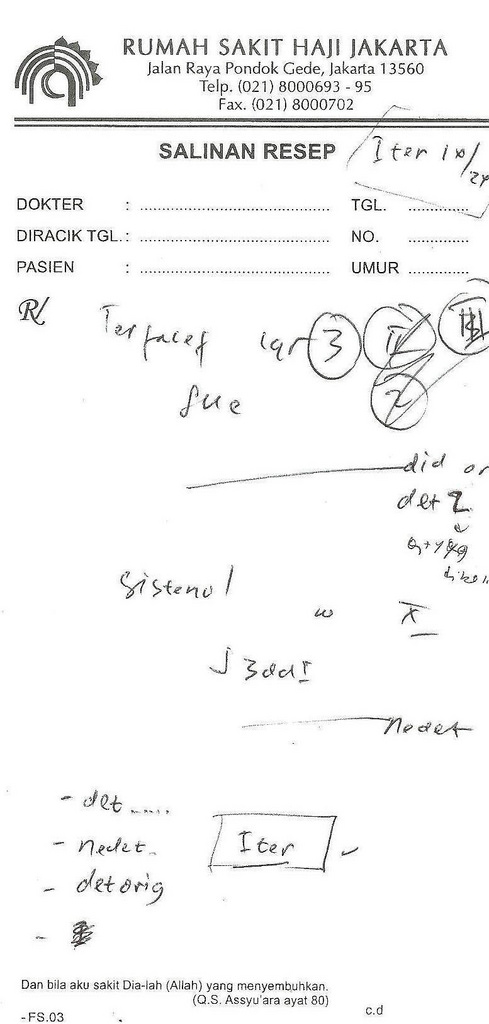 RUMAH SAKIT HAJI JAKARTA
Jalan Raya Pondok Gede, Jakarta 13560
Telp. (021) 8000693 - 95
Fax. (021) 8000702
SALINAN RESEP
Iter 1x/
DOKTER : ........................................ TGL. ..............
DIRACIK TGL.: ........................................ NO. ..............
PASIEN : ........................................ UMUR ..............
R/
Terfacef 1gr 3
did or
det 2
Sistenol
X
3dd I
nedet
- det .....
- nedet. Iter
- det orig
-
Dan bila aku sakit Dia-lah (Allah) yang menyembuhkan.
(Q.S. Assyu'ara ayat 80)
- FS.03
c.d